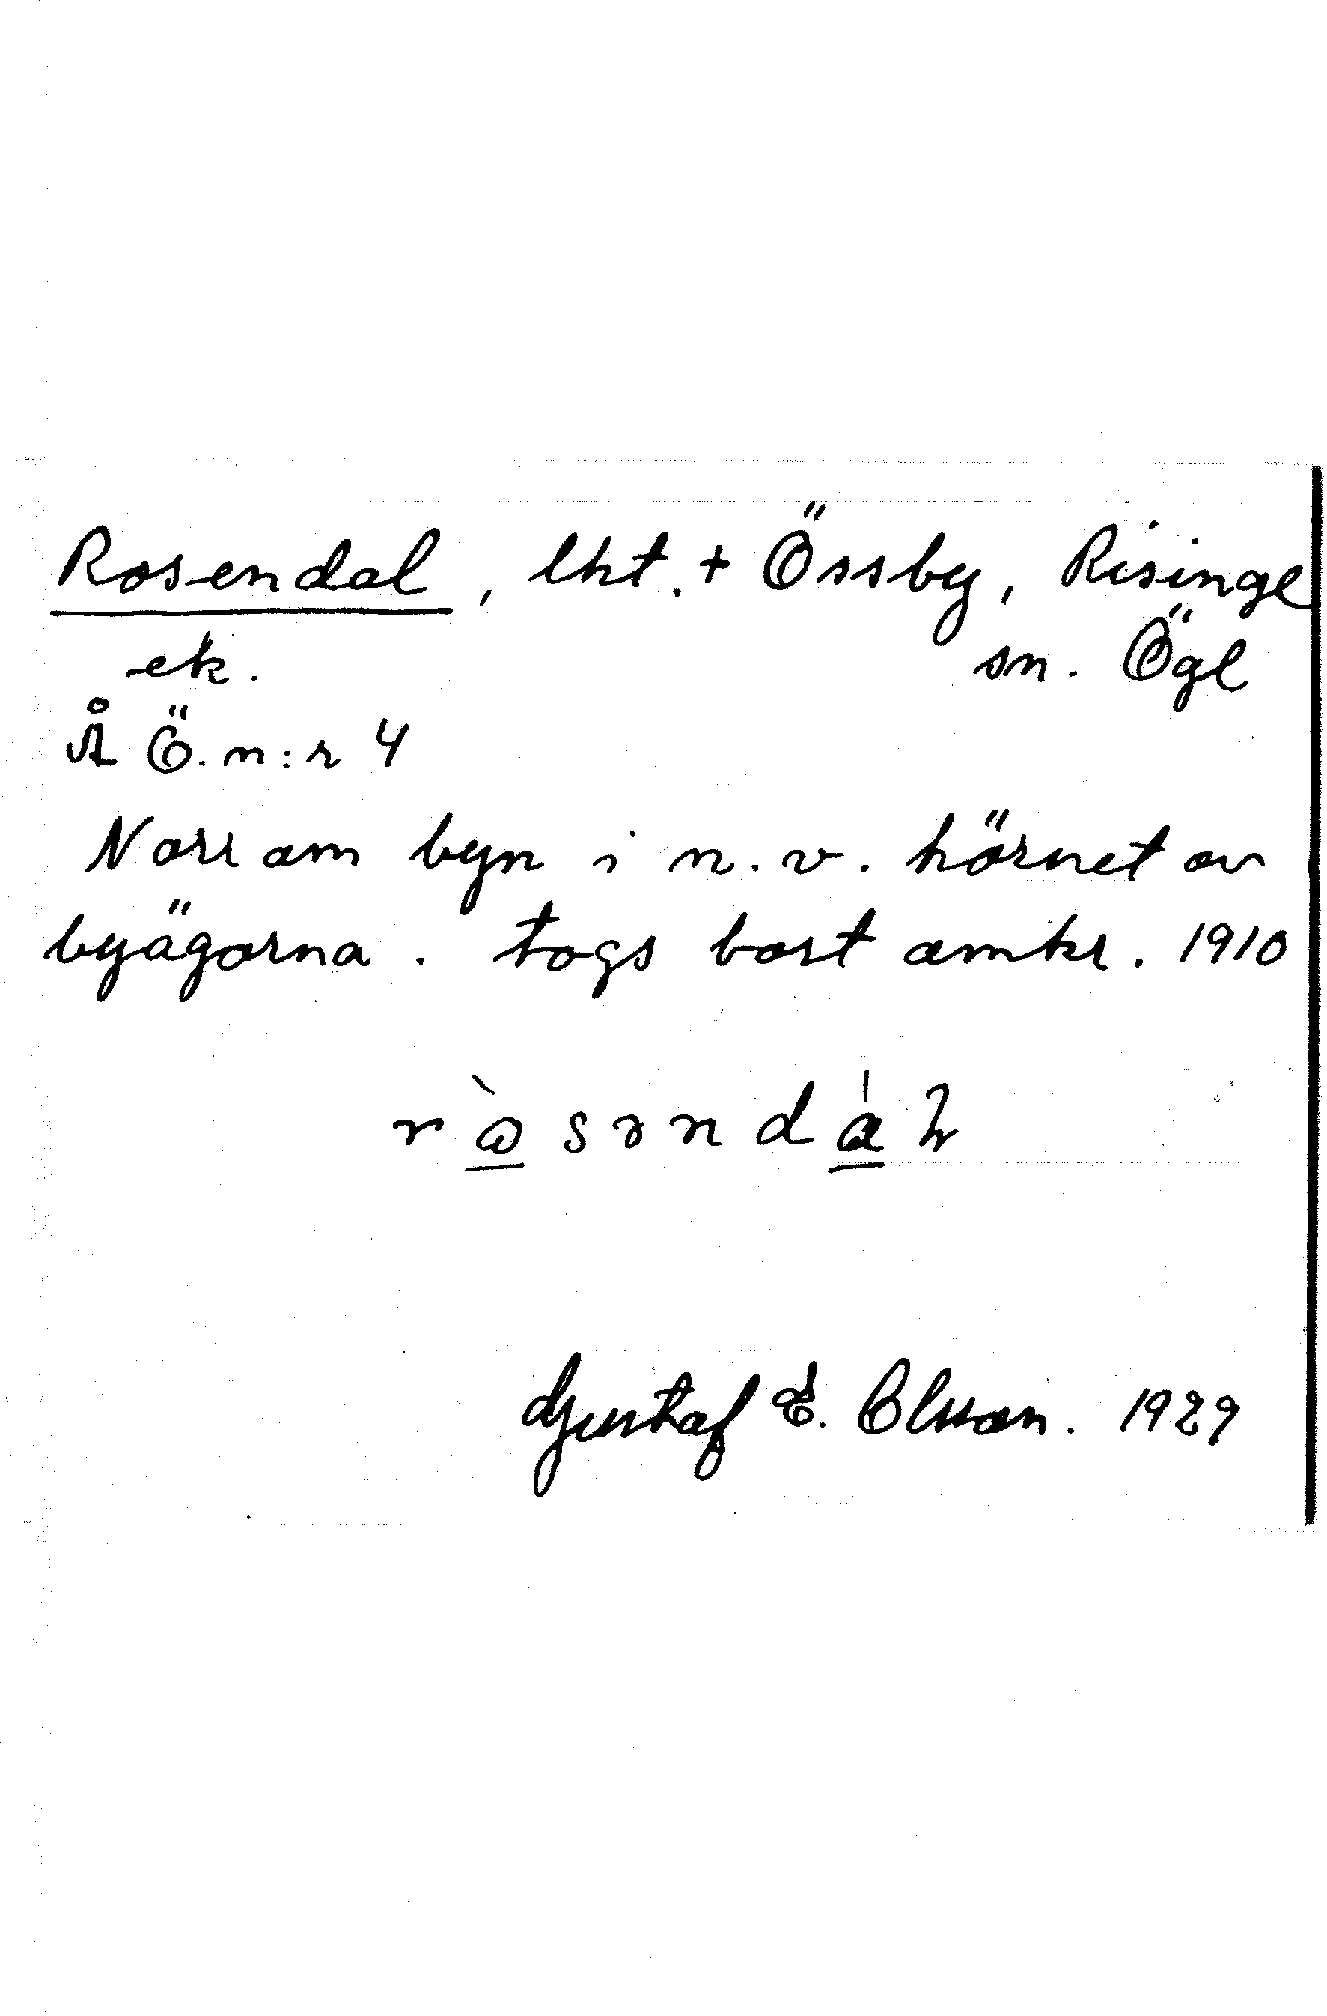 Rosendal, lht. + Össby, Risinge
ek. sn. Ögl
Å Ö. n:r 4
Norr om byn i n.v. hörnet av
byägorna. togs bort omkr. 1910
Gustaf E. Olsson. 1929